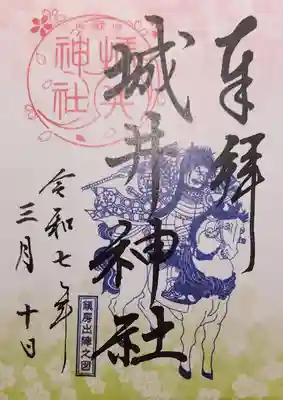 奉拝
城井神社
令和七年
三月十日
鎮房出陣之図
城井神社